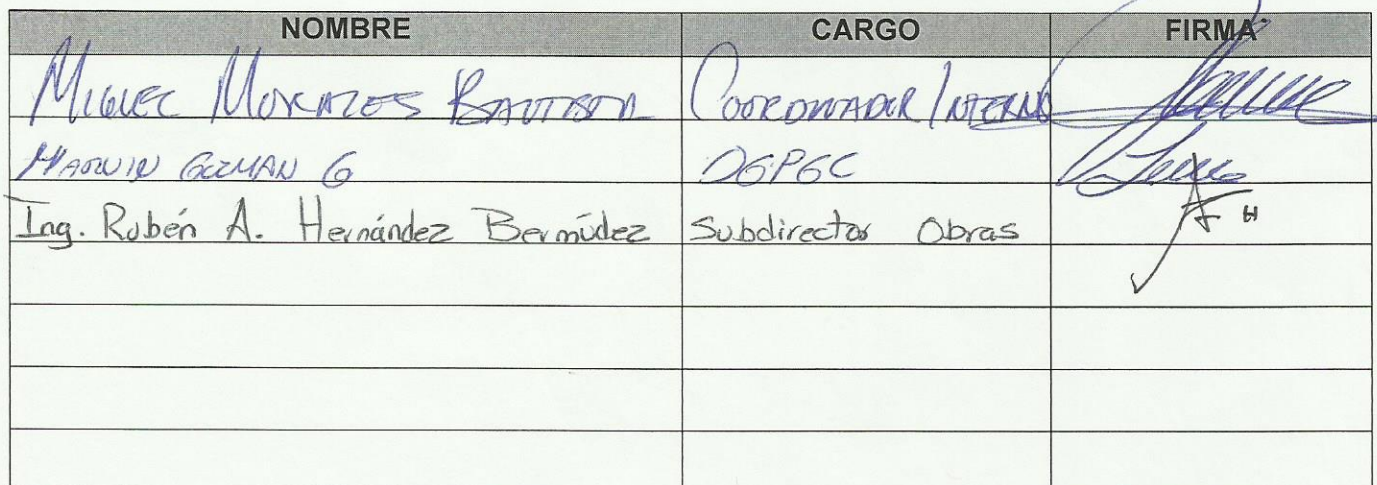 NOMBRE CARGO FIRMA
MIGUEL MORALES BAUTISTA COORDINADOR INTERNO
MARVIN GUZMAN G DGPGC
Ing. Rubén A. Hernández Bermúdez Subdirector Obras